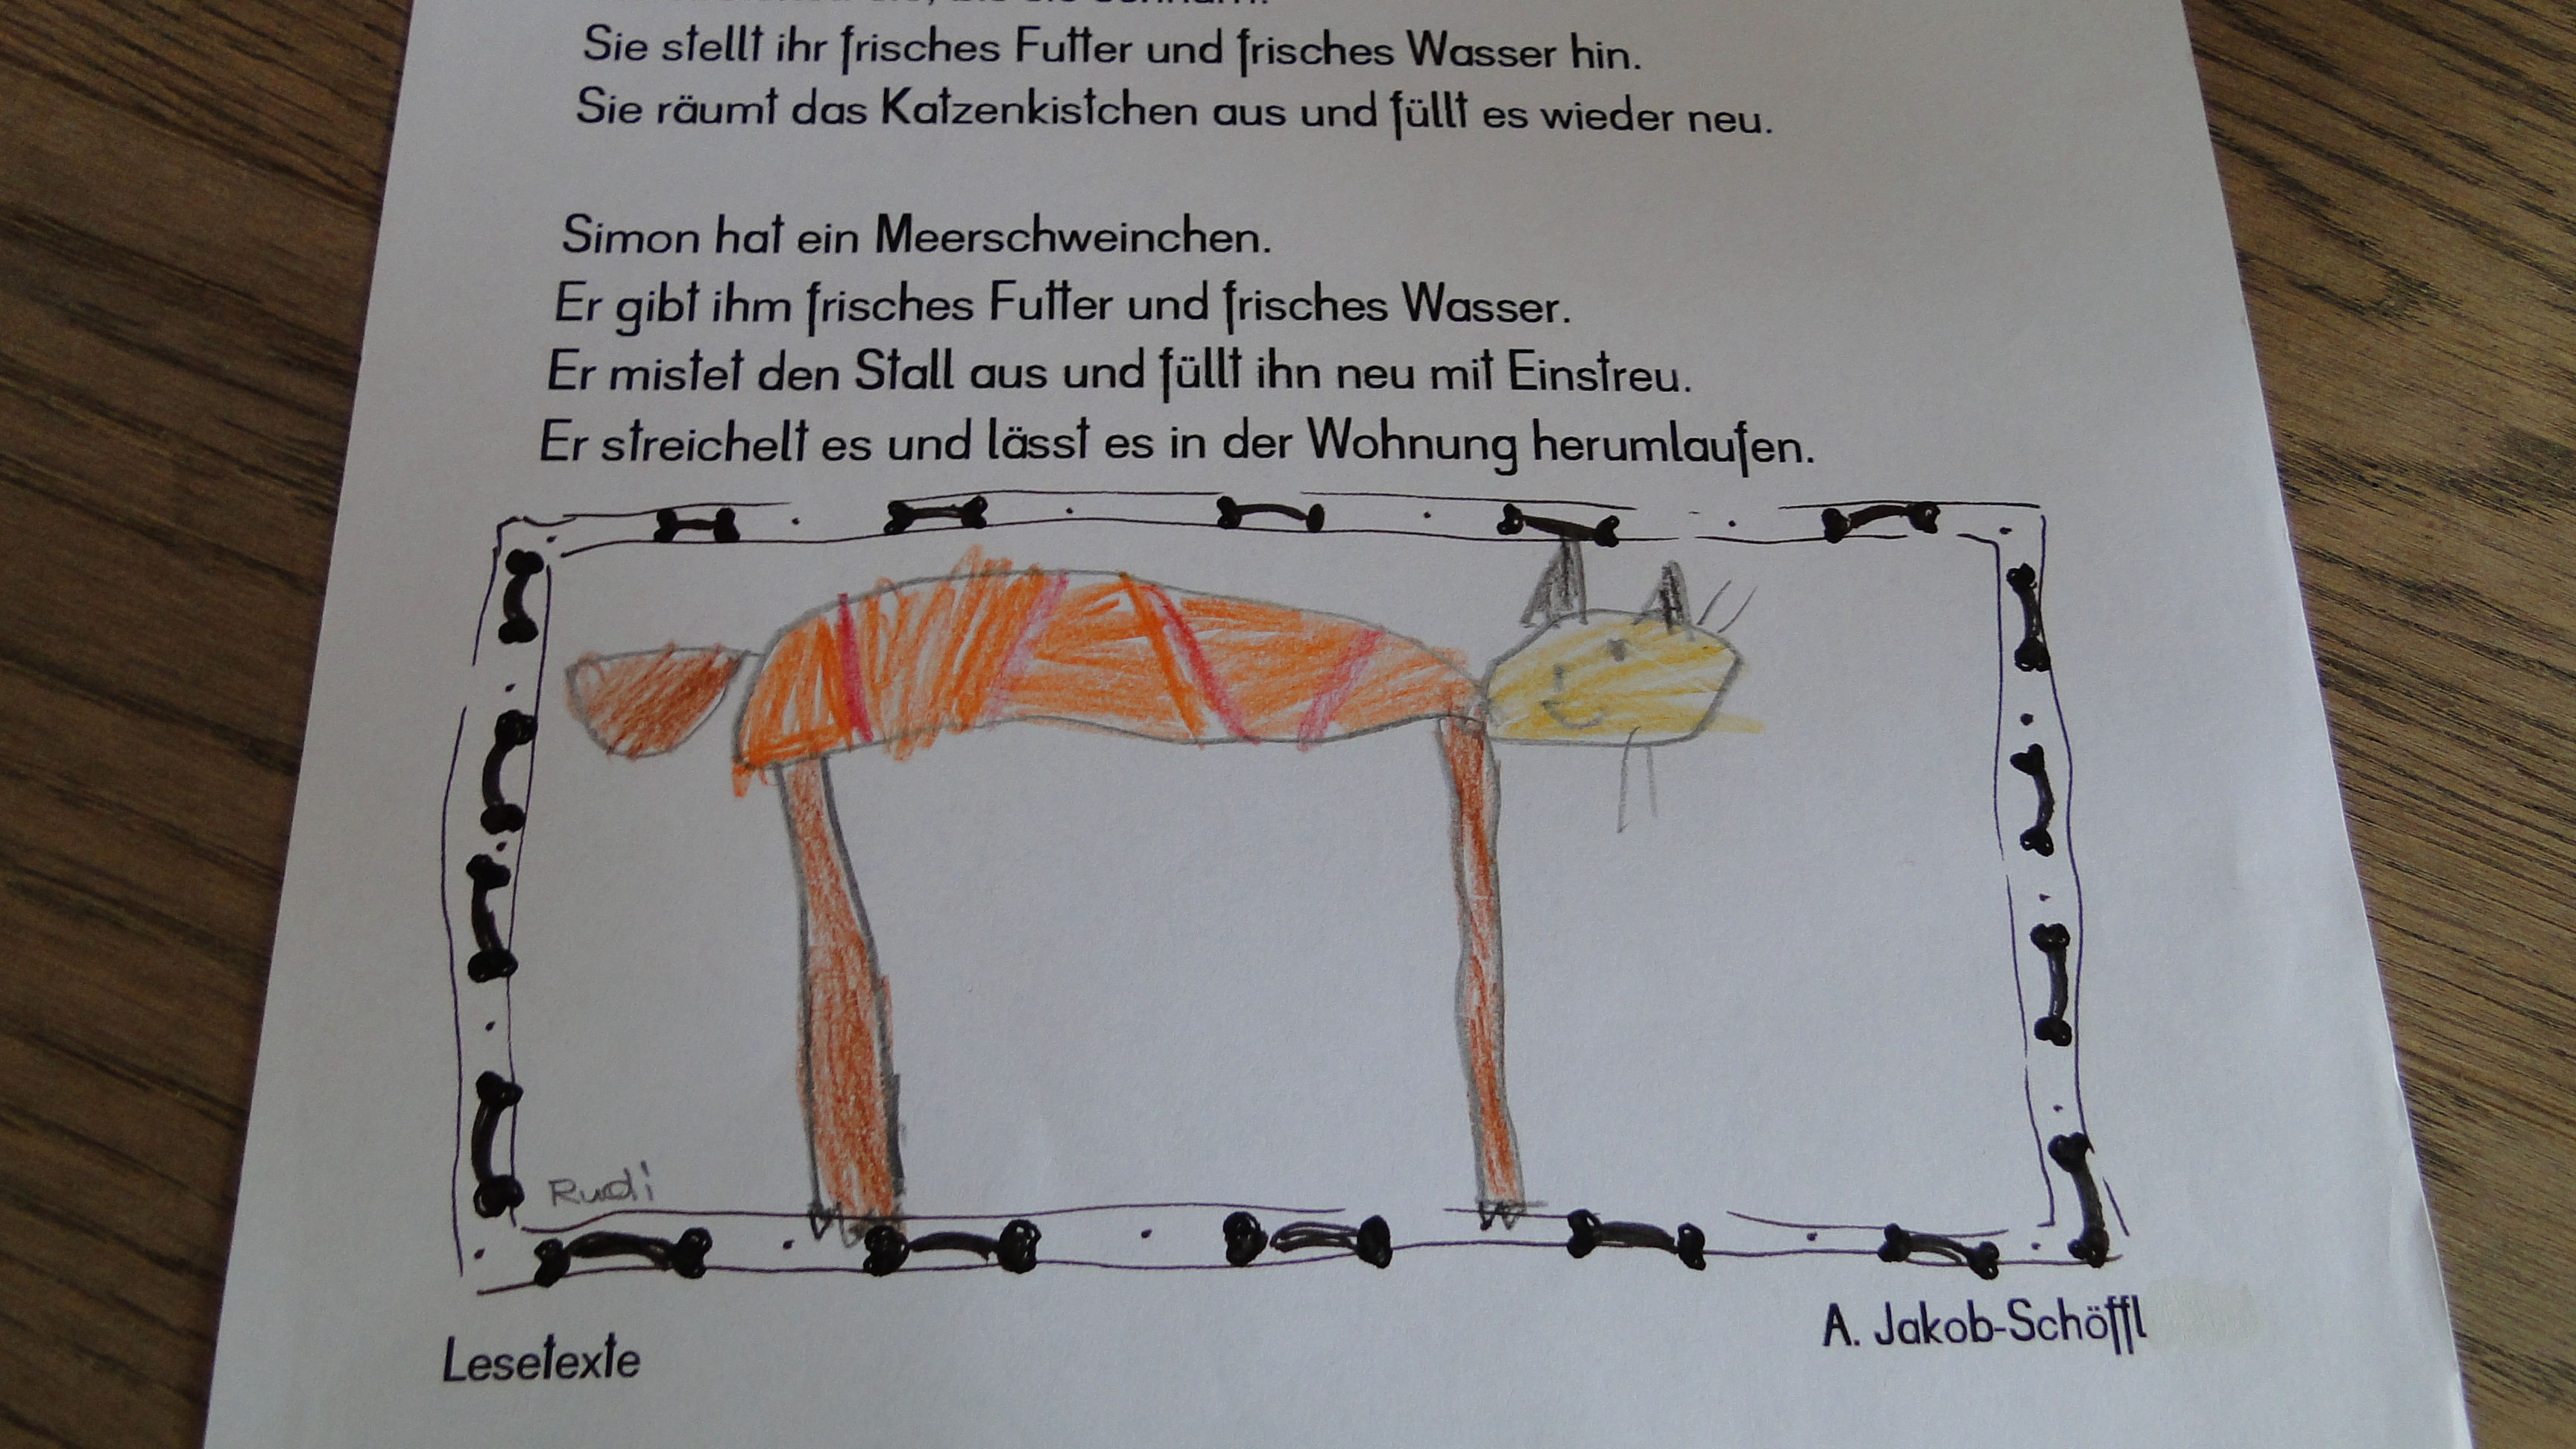 Sie stellt ihr frisches Futter und frisches Wasser hin.
Sie räumt das Katzenkistchen aus und füllt es wieder neu.
Simon hat ein Meerschweinchen.
Er gibt ihm frisches Futter und frisches Wasser.
Er mistet den Stall aus und füllt ihn neu mit Einstreu.
Er streichelt es und lässt es in der Wohnung herumlaufen.
Rudi
A. Jakob-Schöffl
Lesetexte